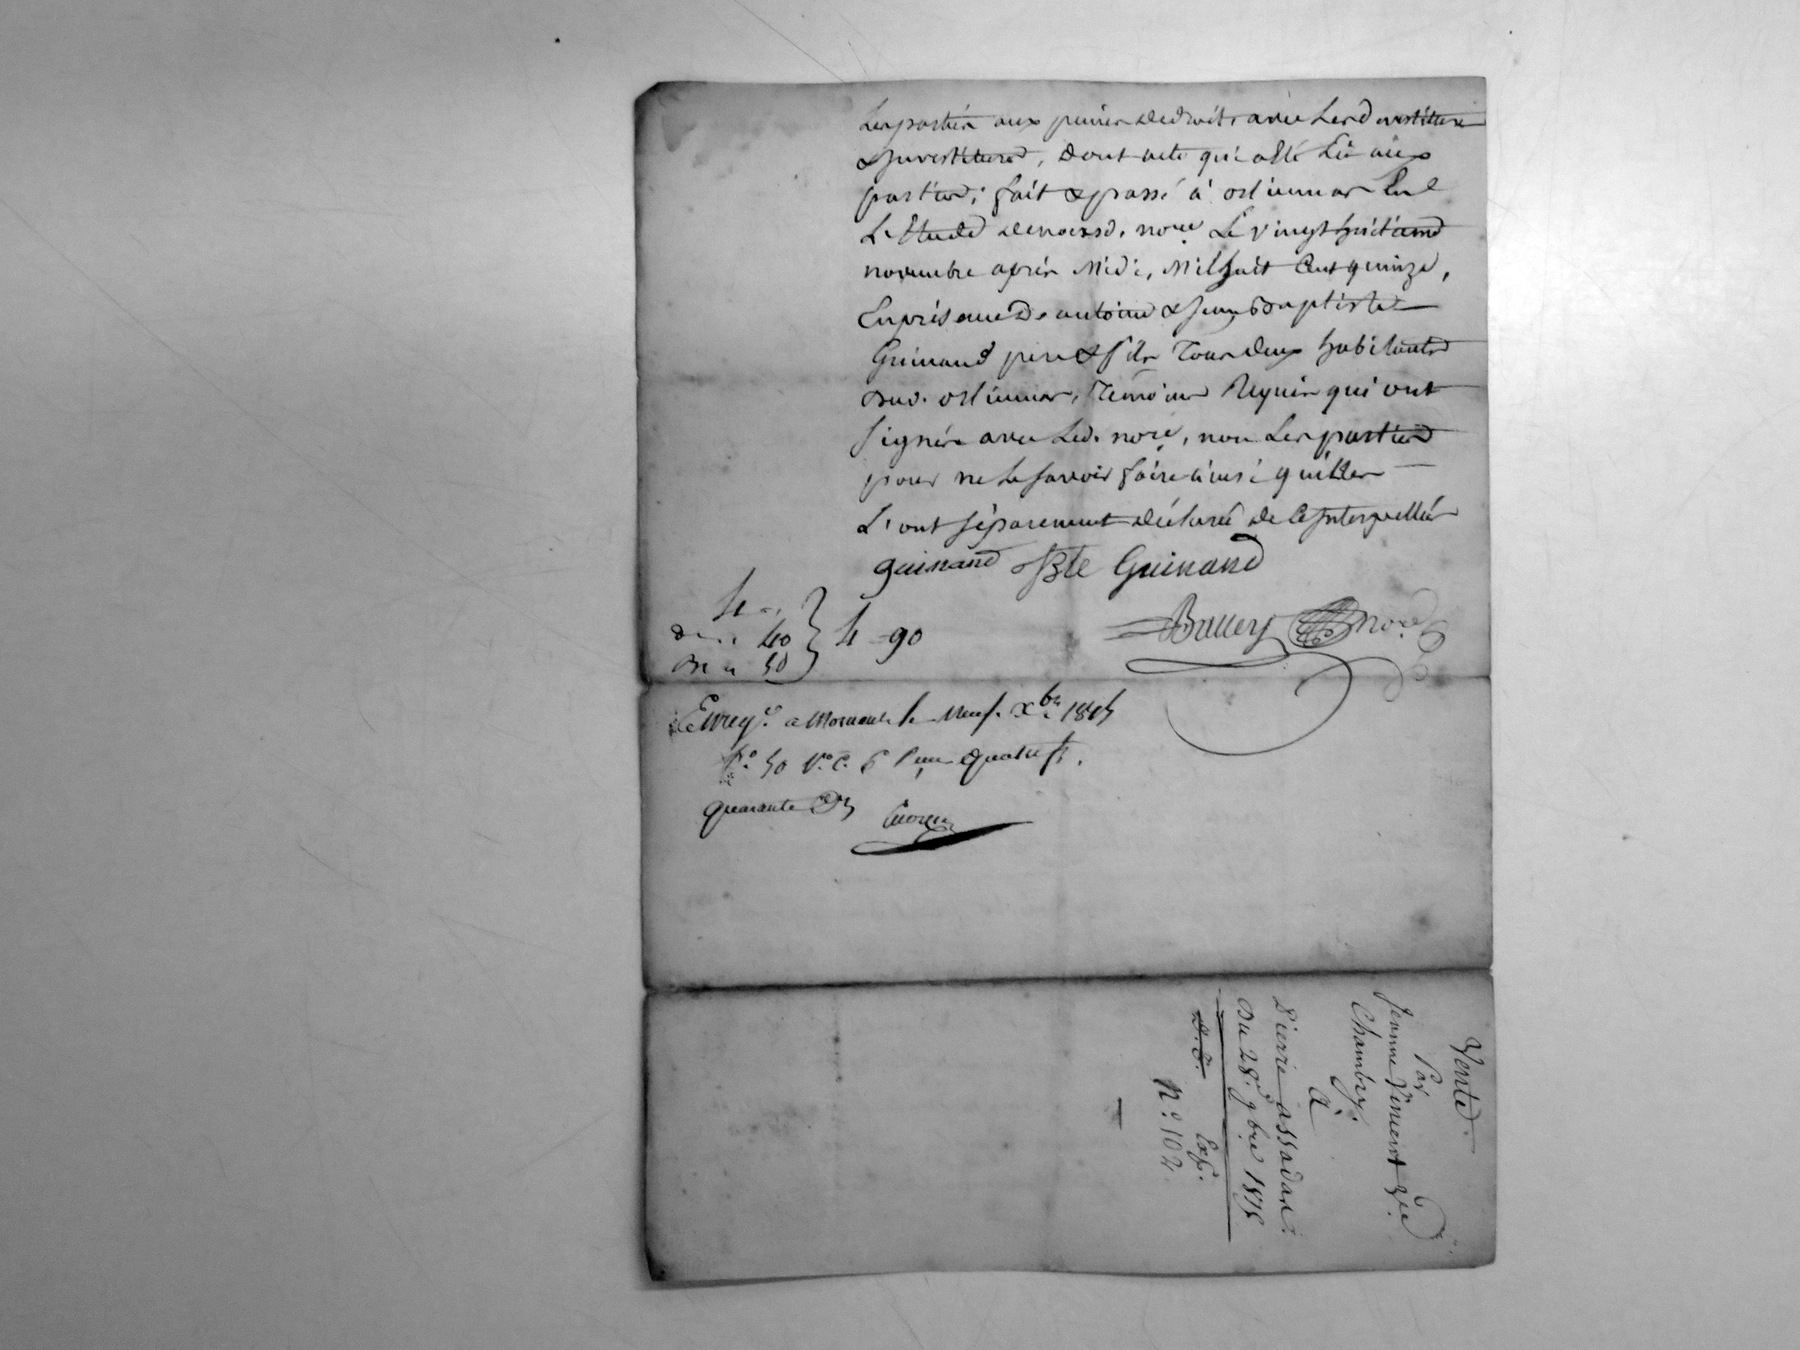 Les parties aux peines de droit, avec les devestitures
& Investitures, dont acte qui a été Lû aux
parties; fait & passé à St. Etienne En
L'Etude de nousd. nore. Le vingt huitieme
novembre après Midi, Mil huit Cent quinze,
En présence De antoine & Jean Baptiste
Guinand pere & fils Tous deux habitants
dud. , Témoins Requis qui ont
signés avec Led. nore, non Les parties
pour ne Le savoir faire ainsi qu'elles
L'ont séparement déclaré de ce Interpellés
guinand JBte Guinand
nore
4 "
D. 40
50
4 - 90
Enregé. a Mornant le Neuf Xbre 1815
fo. 50 Vo. C. 6 Reçu quatre f.
quarante Ces
Vente
Par
Jeanne Vincent Vve
Chambry.
à
Pierre assadas:
Du 28. 9bre 1815
Exp.
No. 102